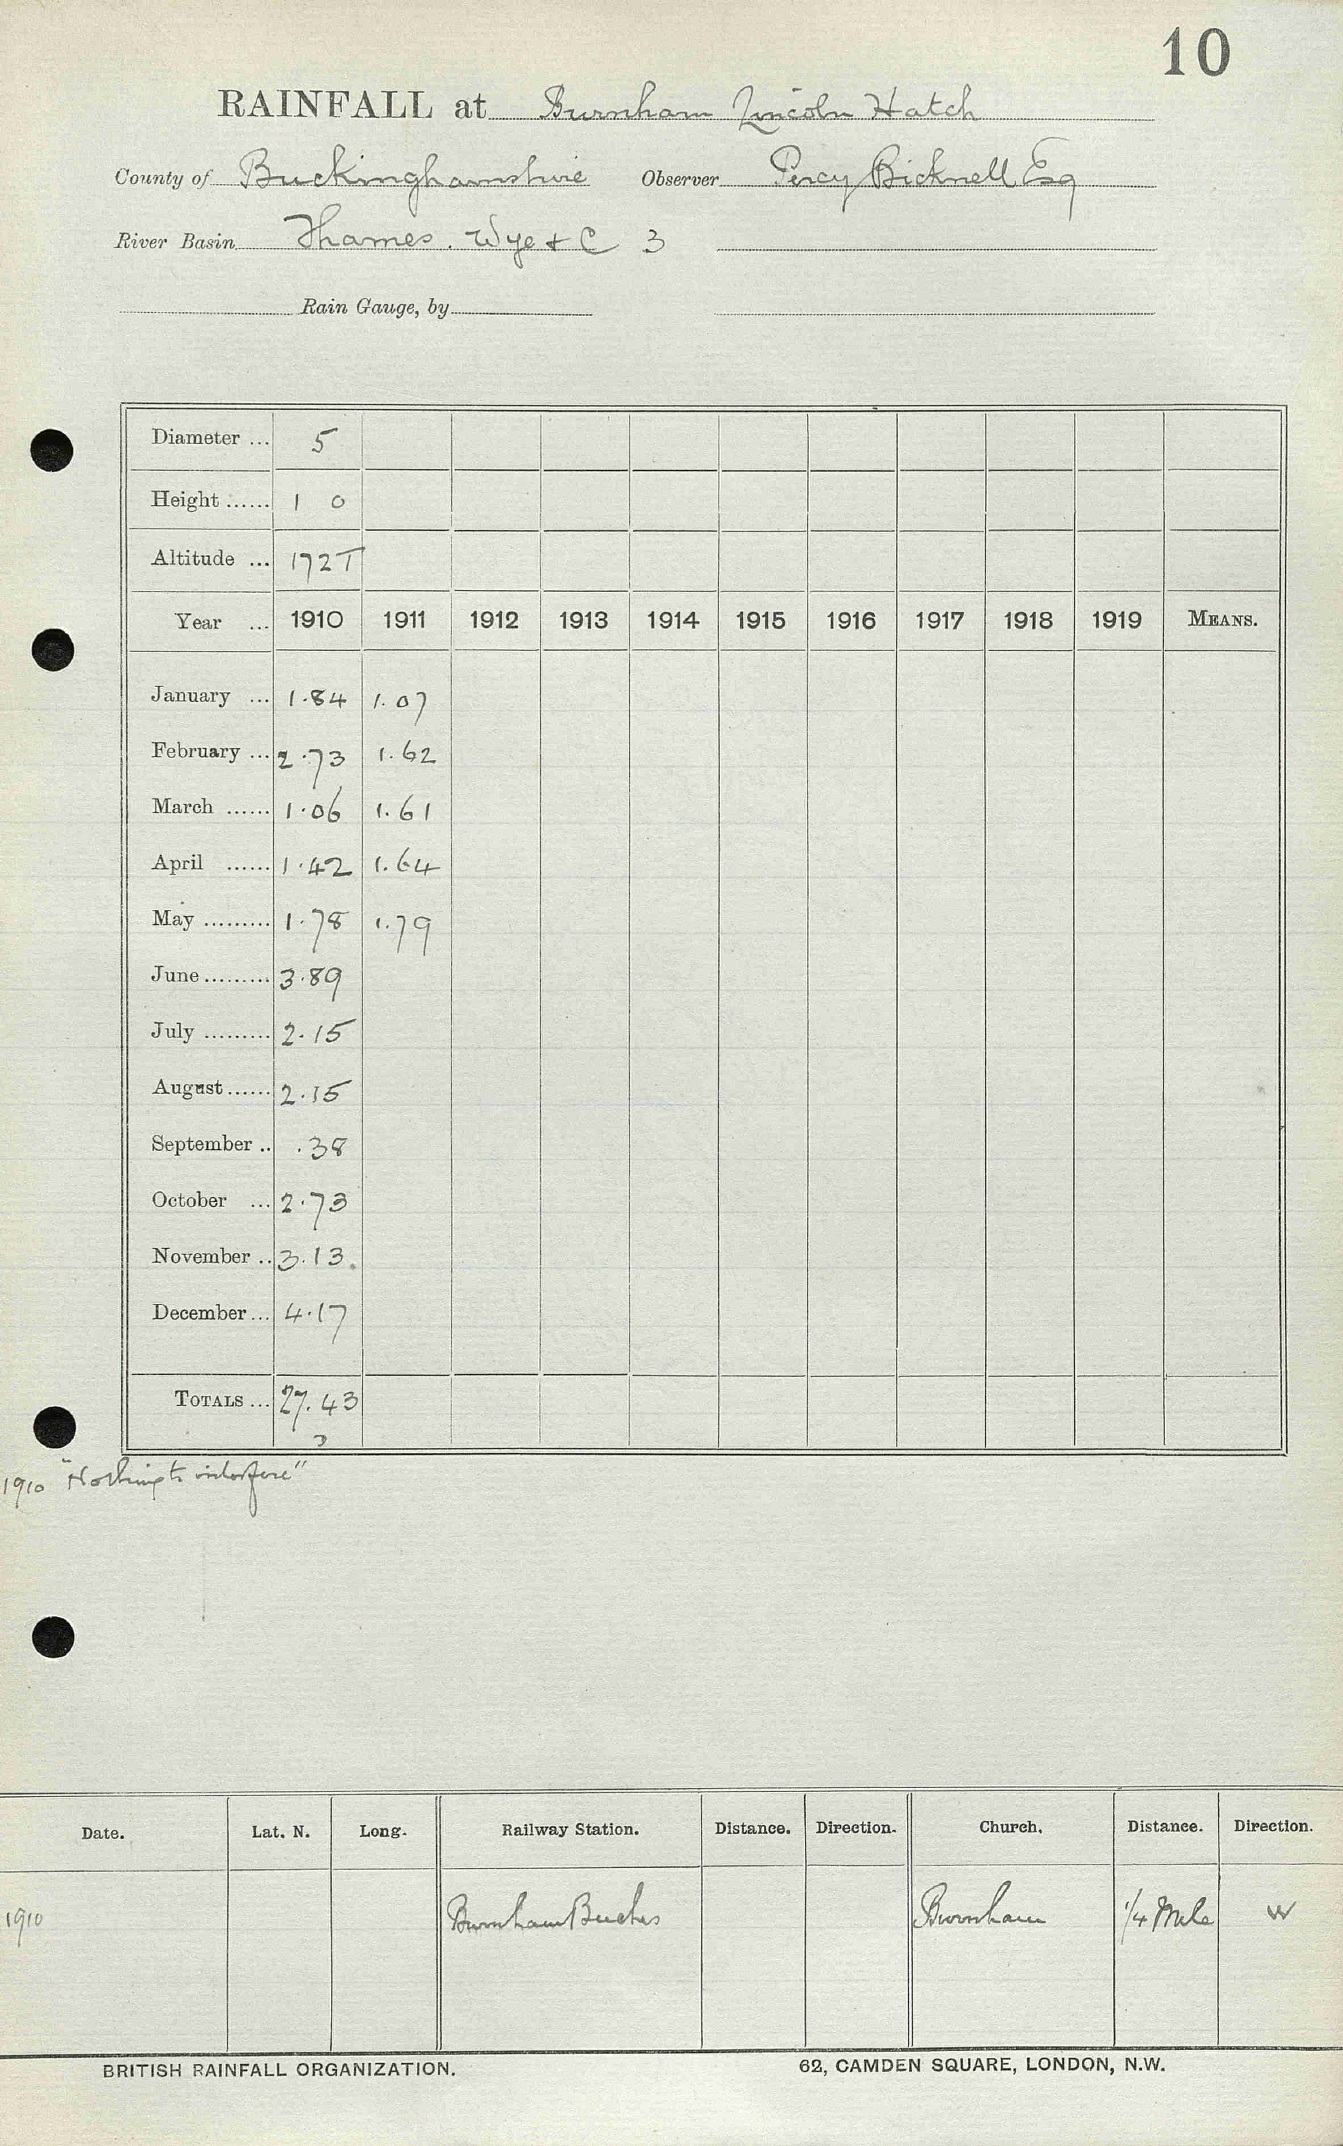 10
RAINFALL at Burnham Lincoln Hatch
County of Buckinghamshire Observer Percy Bicknell Esq
River Basin Thames. Wye + C 3
Rain Gauge, by
Diameter ... 5
Height ...... 1 0
Altitude ... 172T
Year ... 1910 1911 1912 1913 1914 1915 1916 1917 1918 1919 MEANS.
January ... 1.84 1.07
February ... 2.73 1.62
March ...... 1.06 1.61
April ...... 1.42 1.64
May ......... 1.78 1.79
June ......... 3.89
July ......... 2.15
August ...... 2.15
September .. .38
October ... 2.73
November .. 3.13.
December ... 4.17
TOTALS ... 27.43
3
1910 "Nothing to interfere"
Date. Lat. N. Long. Railway Station. Distance. Direction. Church. Distance. Direction.
1910 Burnham Beeches Burnham 1/4 Mile W
BRITISH RAINFALL ORGANIZATION. 62, CAMDEN SQUARE, LONDON, N.W.